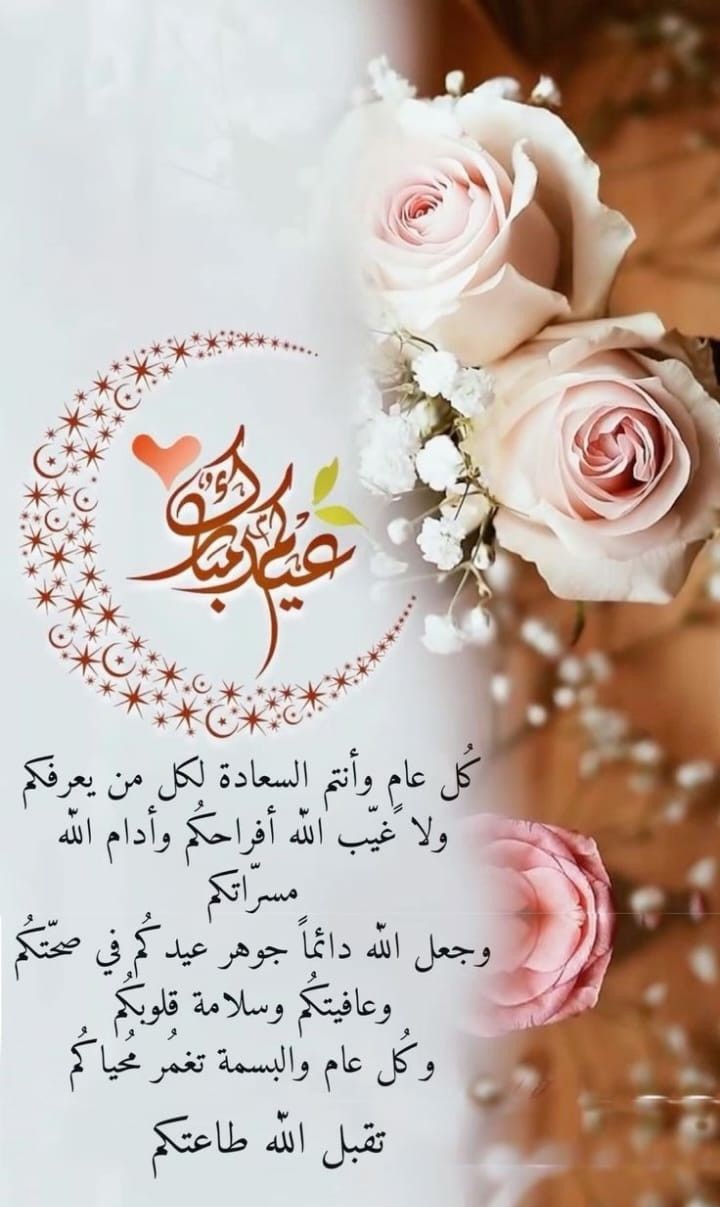 عيدكم مبارك
كُل عامٍ وأنتم السعادة لكل من يعرفكم
ولا غيّب الله أفراحكُم وأدام الله
مسرّاتكم
وجعل الله دائماً جوهر عيدكُم في صحّتكُم
وعافيتكُم وسلامة قلوبكُم
وكُل عام والبسمة تغمُر مُحياكُم
تقبل الله طاعتكم